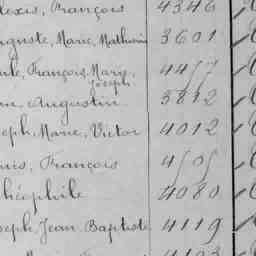 lexis, François 4346
uguste, Marie, Mathurin 3601
François, Marie, Joseph 4457
Augustin 3812
seph, Marie, Victor 4012
uis, François 4505
Théophile 4080
seph, Jean Baptiste 4119